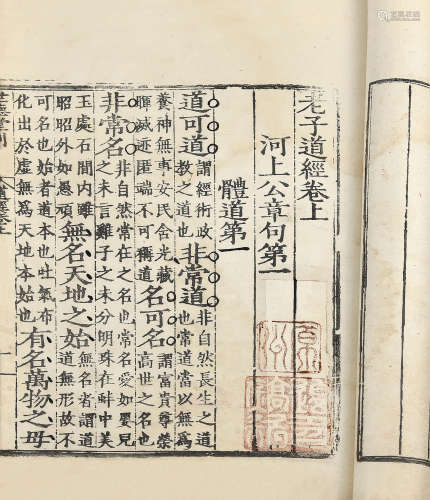 老子道經卷上
河上公章句第一
體道第一
道可道謂經術政教之道也非常道非自然長生之道也常道當以無爲
養神無事安民含光藏暉滅迹匿端不可稱道名可名謂富貴尊榮高世之名也
非常名非自然常在之名也常名愛如嬰兒之未言雞子之未分明珠在蚌中美
玉處石間内雖昭昭外如愚頑無名天地之始無名者謂道道無形故不
可名也始者道本也吐氣布化出於虛無爲天地本始也有名萬物之母